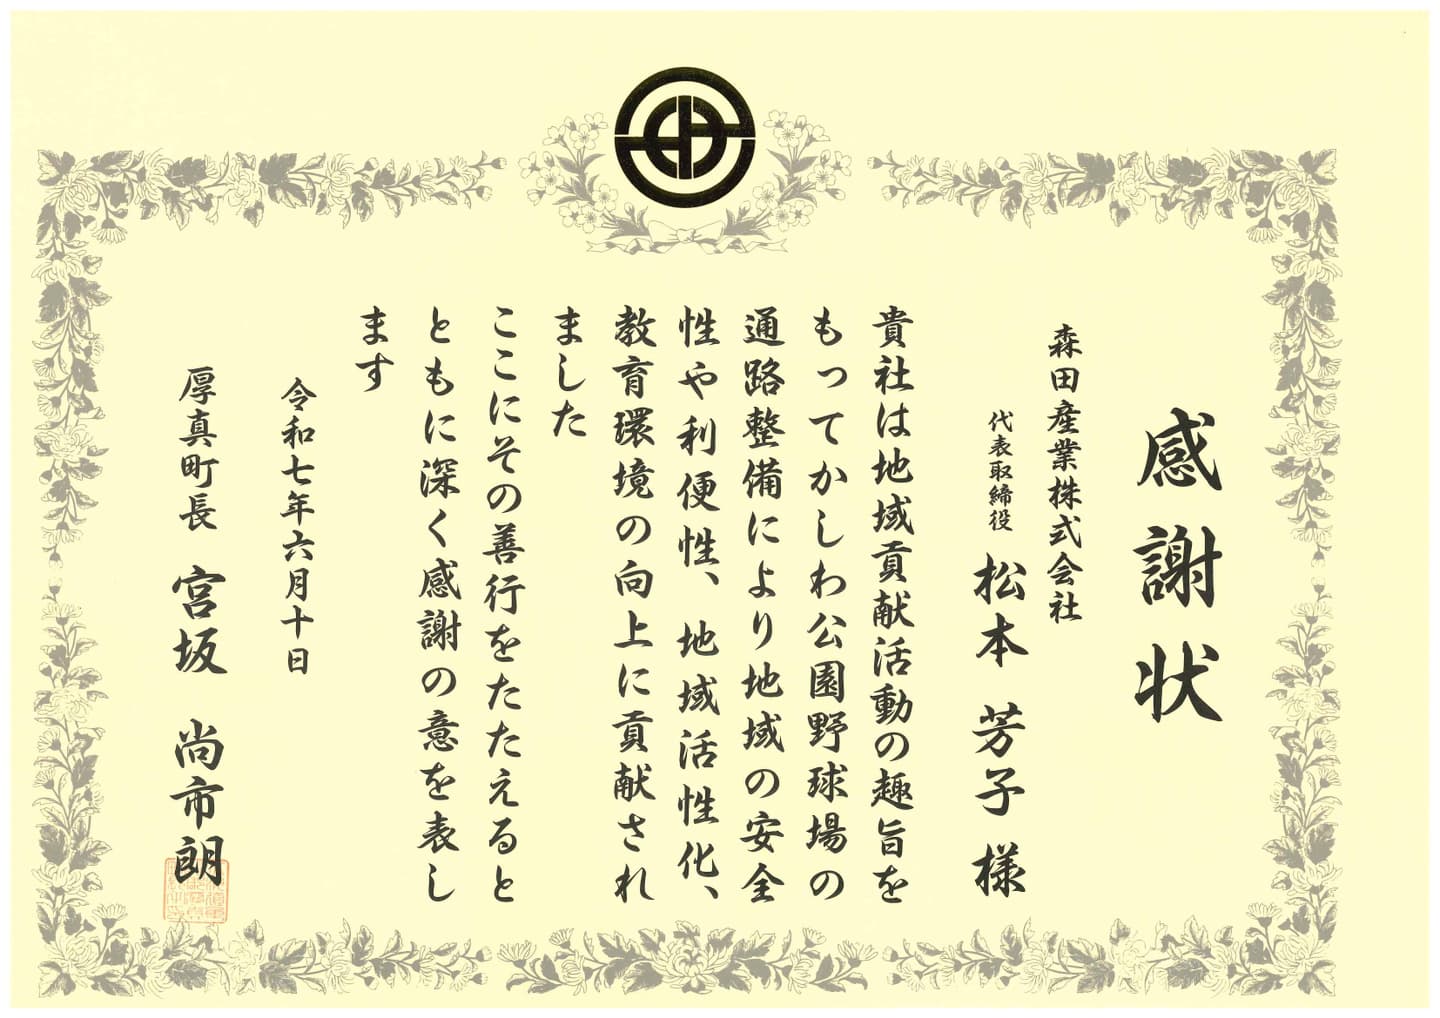 感謝状
森田産業株式会社
代表取締役 松本 芳子 様
貴社は地域貢献活動の趣旨を
もってかしわ公園野球場の
通路整備により地域の安全
性や利便性、地域活性化、
教育環境の向上に貢献され
ました
ここにその善行をたたえると
ともに深く感謝の意を表し
ます
令和七年六月十日
厚真町長 宮坂 尚市朗